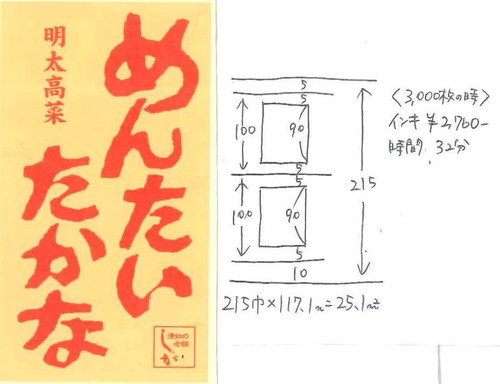 めんたい
たかな
明太高菜
し
が
5
5
100
90
5
5
100
90
5
10
215
215巾×117.1m=25.1㎡
〈3,000枚の時〉
インキ ¥2,760-
時間 32分